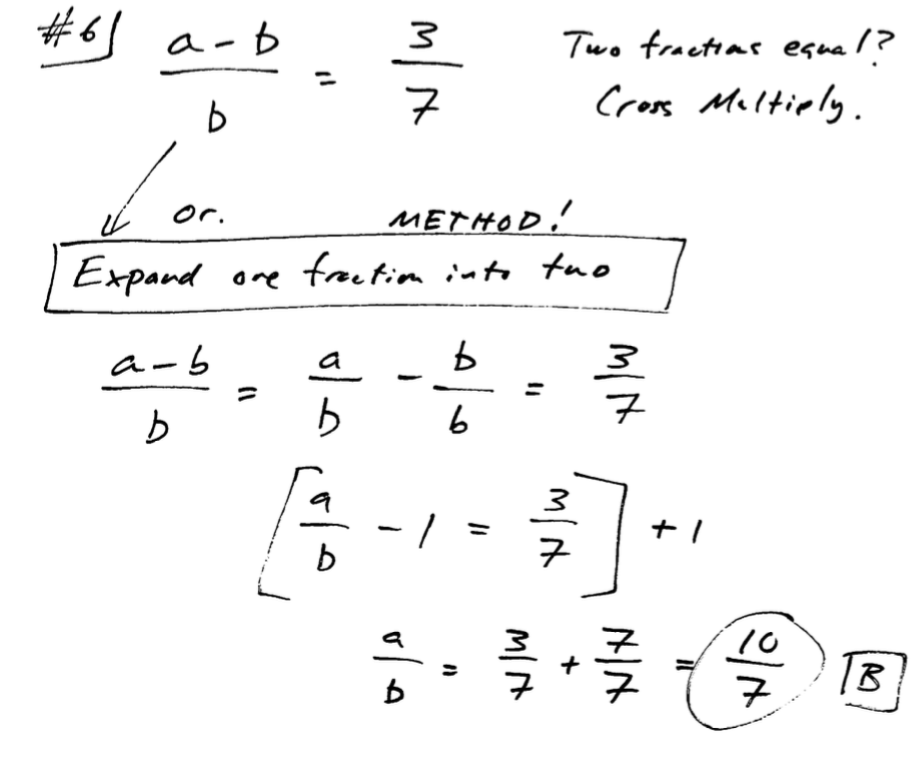 #6 (a-b)/b = 3/7 Two fractions equal?
Cross Multiply.
or. METHOD!
Expand one fraction into two
(a-b)/b = a/b - b/b = 3/7
[a/b - 1 = 3/7] + 1
a/b = 3/7 + 7/7 = 10/7 B